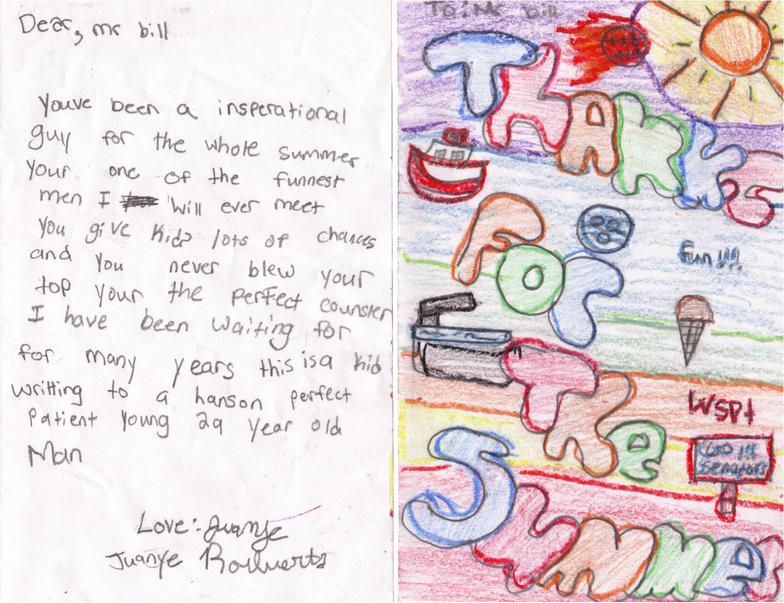 Dear, mr bill
Youve been a insperational
guy for the whole summer
Your one of the funnest
men I will ever meet
You give kids lots of chances
and You never blew your
top your the perfect counsler
I have been waiting for
for many years this is a kid
writting to a hanson perfect
Patient young 29 year old
Man
Love:- Juanye
Juanye
To: Mr bill
THANKs
FOr
fun!!!
The
WSP!
GO!!!
Senators
Summer